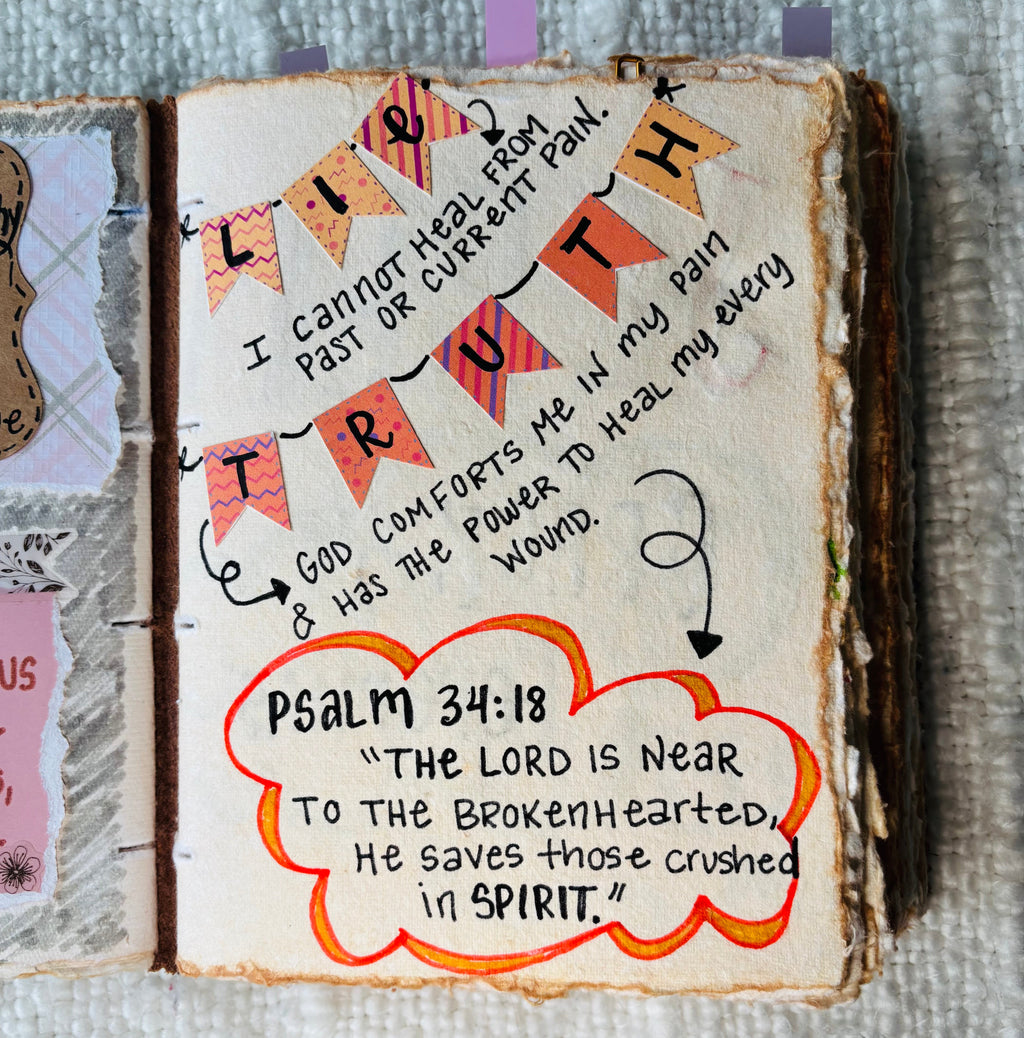 LIe
I CANNOT HeaL FROM
PAST OR CURRENT PAIN.
TRUTH
GOD COMFORTS Me IN my PAIN
& Has THe POWER TO HeaL my every
WOUND.
PSaLm 34:18
"THe LORD IS Near
TO THE BROKenHearteD,
He saves those crushed
in SPIRIT."
US